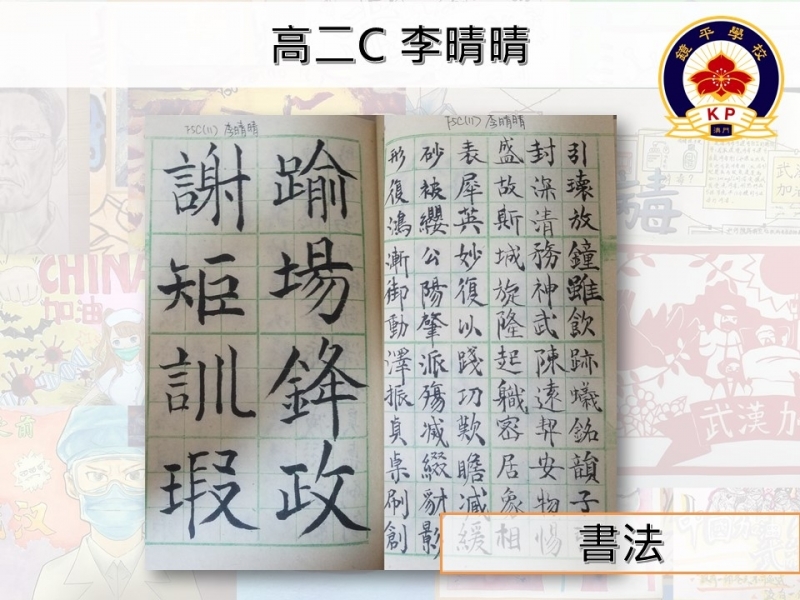 高二C 李晴晴
鏡平學校
KP
澳門
F5C(11) 李晴晴
踰場鋒政
謝矩訓瑕
F5C(11) 李晴晴
引環放鐘雖飲跡蟻銘韻子
封深清務神武陳遠契安物惕
盛故斯城旋隆起職容居象相
表犀英妙復以踐功歎瞻減緩
砂被纓公陽肇派殤減綴獸影
形復鴻漸御動澤振貞桌刷創
書法
CHINA
加油
武漢加